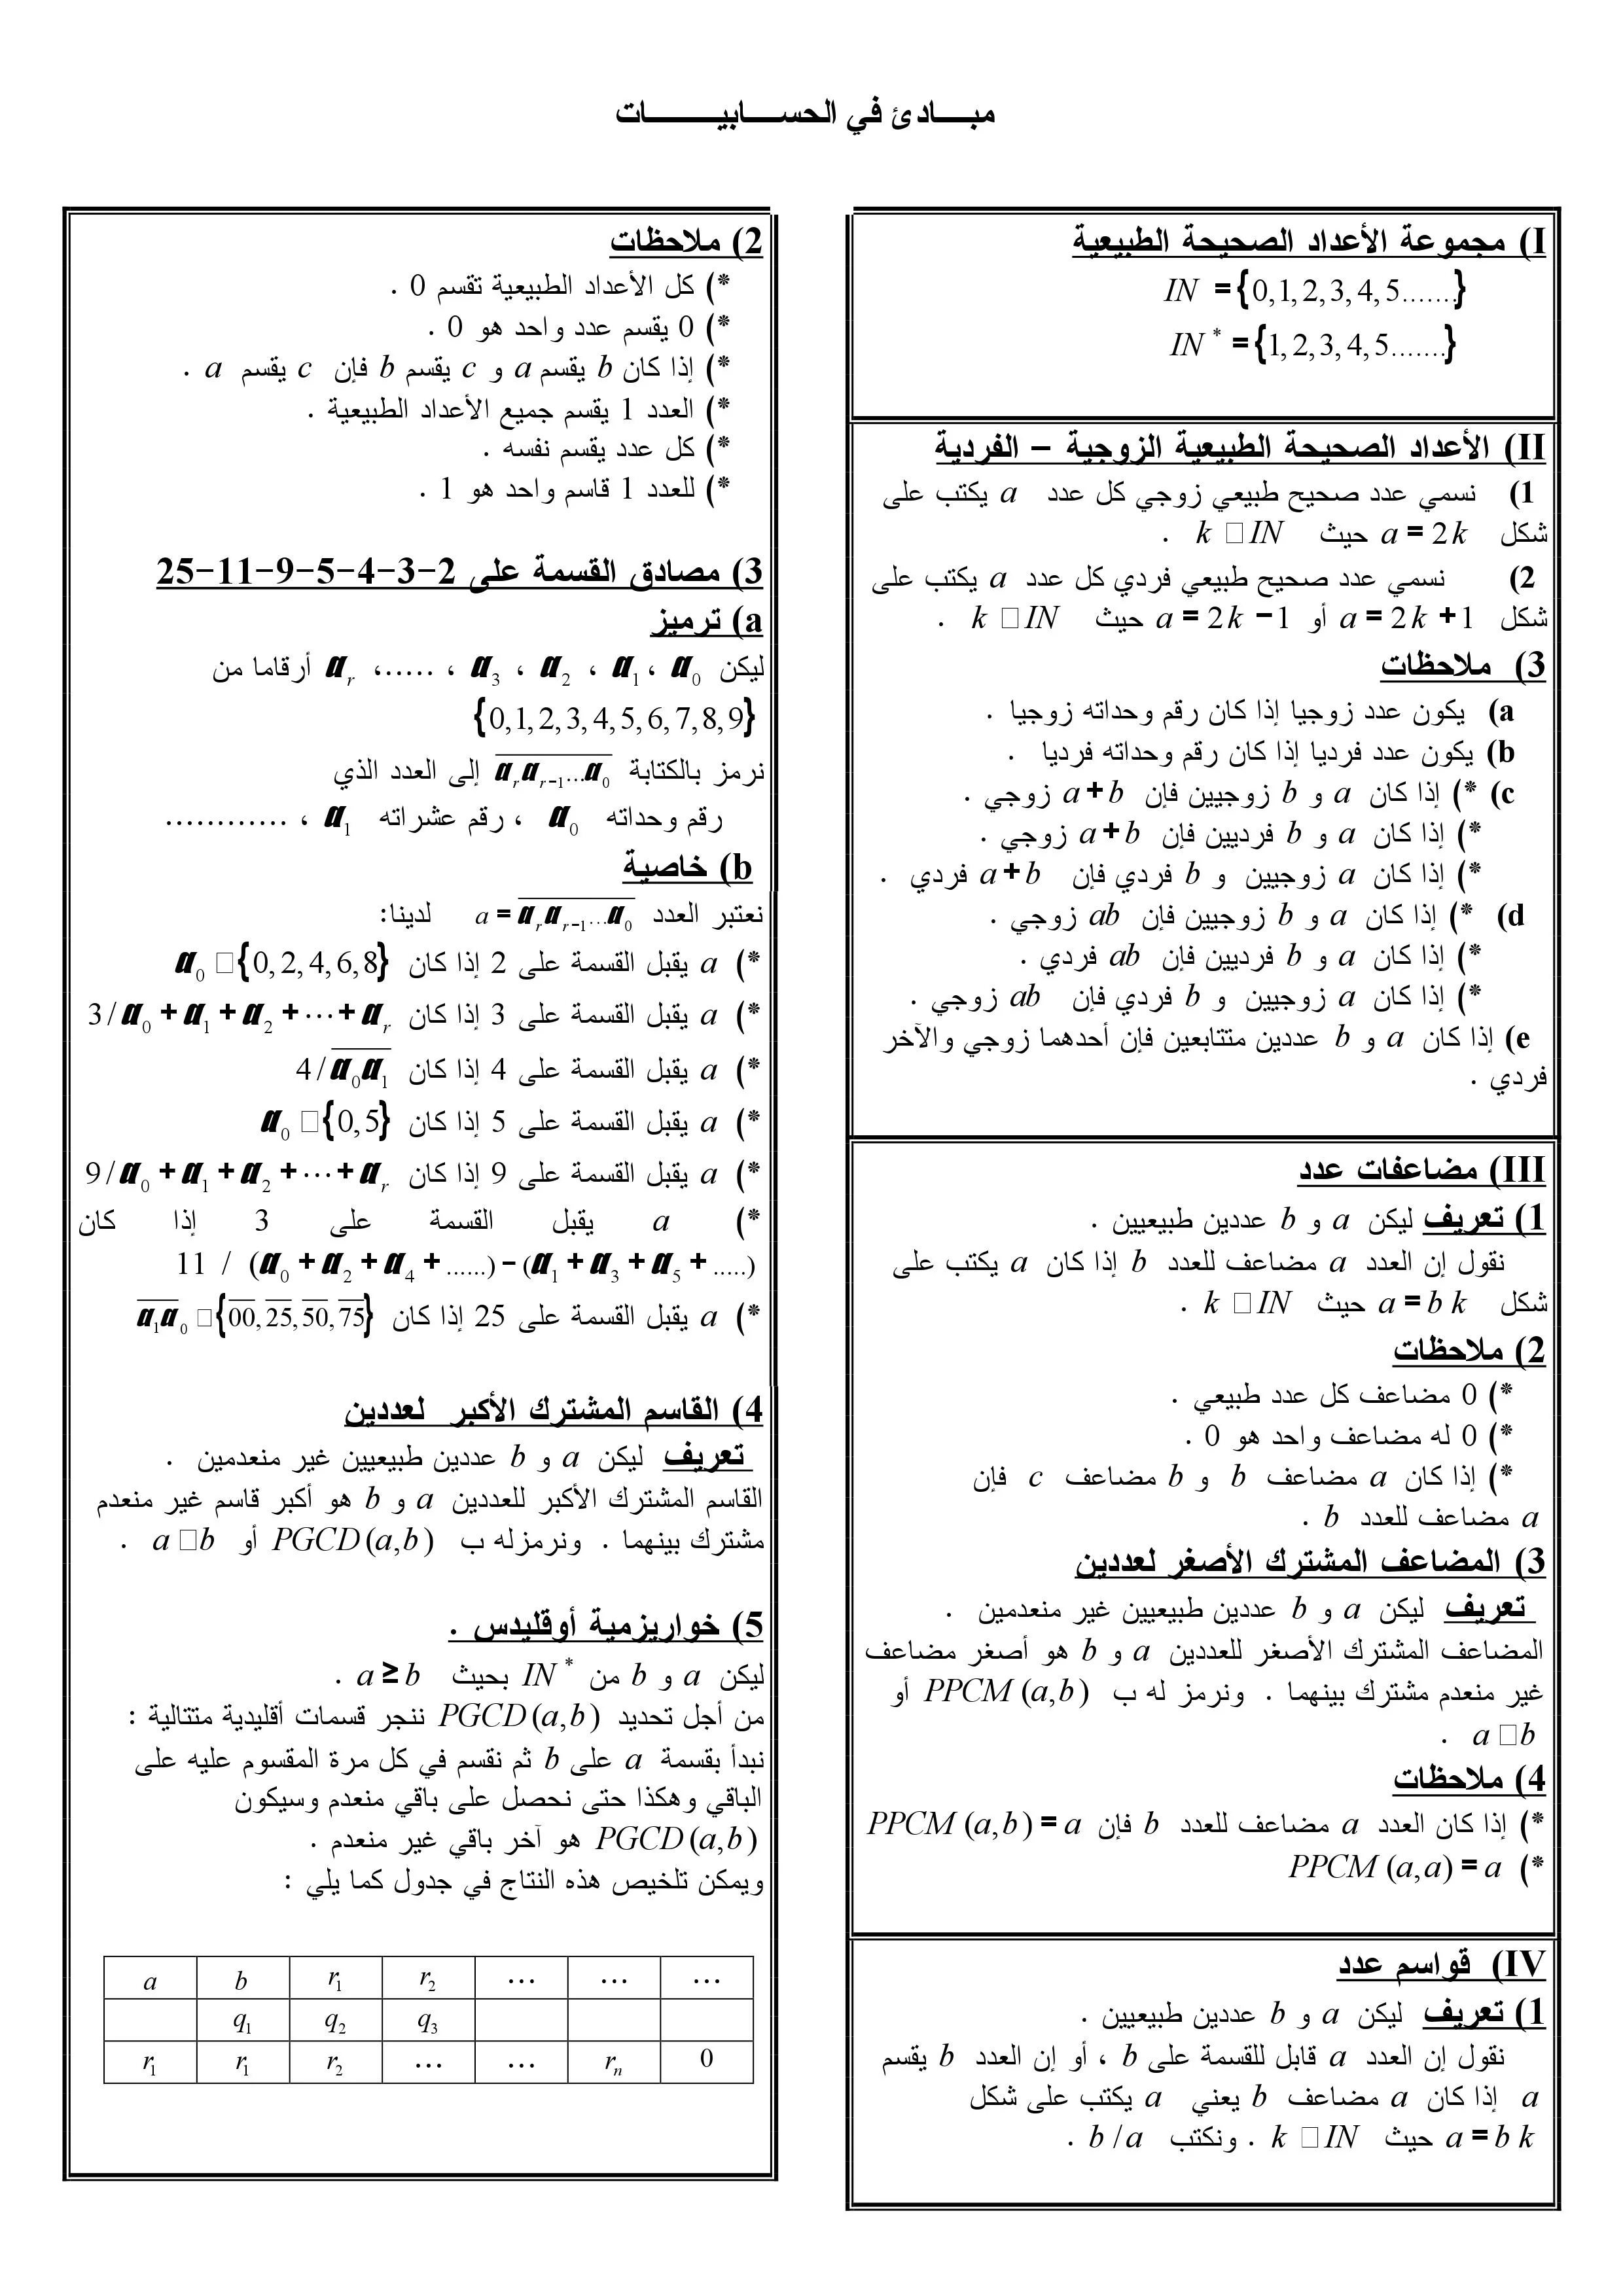 مبـــادئ في الحســـابيـــــات
I) مجموعة الأعداد الصحيحة الطبيعية
IN = {0,1,2,3,4,5.......}
IN* = {1,2,3,4,5.......}
II) الأعداد الصحيحة الطبيعية الزوجية – الفردية
1) نسمي عدد صحيح طبيعي زوجي كل عدد a يكتب على
شكل a = 2k حيث k □ IN .
2) نسمي عدد صحيح طبيعي فردي كل عدد a يكتب على
شكل a = 2k + 1 أو a = 2k − 1 حيث k □ IN .
3) ملاحظات
a) يكون عدد زوجيا إذا كان رقم وحداته زوجيا .
b) يكون عدد فرديا إذا كان رقم وحداته فرديا .
c) *) إذا كان a و b زوجيين فإن a + b زوجي .
*) إذا كان a و b فرديين فإن a + b زوجي .
*) إذا كان a زوجيين و b فردي فإن a + b فردي .
d) *) إذا كان a و b زوجيين فإن ab زوجي .
*) إذا كان a و b فرديين فإن ab فردي .
*) إذا كان a زوجيين و b فردي فإن ab زوجي .
e) إذا كان a و b عددين متتابعين فإن أحدهما زوجي والآخر
فردي .
III) مضاعفات عدد
1) تعريف ليكن a و b عددين طبيعيين .
نقول إن العدد a مضاعف للعدد b إذا كان a يكتب على
شكل a = b k حيث k □ IN .
2) ملاحظات
*) 0 مضاعف كل عدد طبيعي .
*) 0 له مضاعف واحد هو 0 .
*) إذا كان a مضاعف b و b مضاعف c فإن
a مضاعف للعدد b .
3) المضاعف المشترك الأصغر لعددين
تعريف ليكن a و b عددين طبيعيين غير منعدمين .
المضاعف المشترك الأصغر للعددين a و b هو أصغر مضاعف
غير منعدم مشترك بينهما . ونرمز له ب PPCM (a,b) أو
a □ b .
4) ملاحظات
*) إذا كان العدد a مضاعف للعدد b فإن PPCM (a,b) = a
*) PPCM (a,a) = a
IV) قواسم عدد
1) تعريف ليكن a و b عددين طبيعيين .
نقول إن العدد a قابل للقسمة على b ، أو إن العدد b يقسم
a إذا كان a مضاعف b يعني a يكتب على شكل
a = b k حيث k □ IN . ونكتب b / a .
2) ملاحظات
*) كل الأعداد الطبيعية تقسم 0 .
*) 0 يقسم عدد واحد هو 0 .
*) إذا كان b يقسم a و c يقسم b فإن c يقسم a .
*) العدد 1 يقسم جميع الأعداد الطبيعية .
*) كل عدد يقسم نفسه .
*) للعدد 1 قاسم واحد هو 1 .
3) مصادق القسمة على 2-3-4-5-9-11-25
a) ترميز
ليكن a₀ ، a₁ ، a₂ ، a₃ ، ..... ، aᵣ أرقاما من
{0,1,2,3,4,5,6,7,8,9}
نرمز بالكتابة aᵣaᵣ₋₁...a₀ إلى العدد الذي
رقم وحداته a₀ ، رقم عشراته a₁ ، ............
b) خاصية
نعتبر العدد a = aᵣaᵣ₋₁...a₀ لدينا:
*) a يقبل القسمة على 2 إذا كان a₀ □ {0,2,4,6,8}
*) a يقبل القسمة على 3 إذا كان 3 / a₀ + a₁ + a₂ + ⋯ + aᵣ
*) a يقبل القسمة على 4 إذا كان 4 / a₀a₁
*) a يقبل القسمة على 5 إذا كان a₀ □ {0,5}
*) a يقبل القسمة على 9 إذا كان 9 / a₀ + a₁ + a₂ + ⋯ + aᵣ
*) a يقبل القسمة على 3 إذا كان
11 / (a₀ + a₂ + a₄ + ......) − (a₁ + a₃ + a₅ + .....)
*) a يقبل القسمة على 25 إذا كان a₁a₀ □ {00,25,50,75}
4) القاسم المشترك الأكبر لعددين
تعريف ليكن a و b عددين طبيعيين غير منعدمين .
القاسم المشترك الأكبر للعددين a و b هو أكبر قاسم غير منعدم
مشترك بينهما . ونرمزله ب PGCD (a,b) أو a □ b .
5) خواريزمية أوقليدس .
ليكن a و b من IN* بحيث a ≥ b .
من أجل تحديد PGCD (a,b) ننجر قسمات أقليدية متتالية :
نبدأ بقسمة a على b ثم نقسم في كل مرة المقسوم عليه على
الباقي وهكذا حتى نحصل على باقي منعدم وسيكون
PGCD (a,b) هو آخر باقي غير منعدم .
ويمكن تلخيص هذه النتاج في جدول كما يلي :
a b r₁ r₂ ... ... ...
q₁ q₂ q₃
r₁ r₁ r₂ ... ... rₙ 0